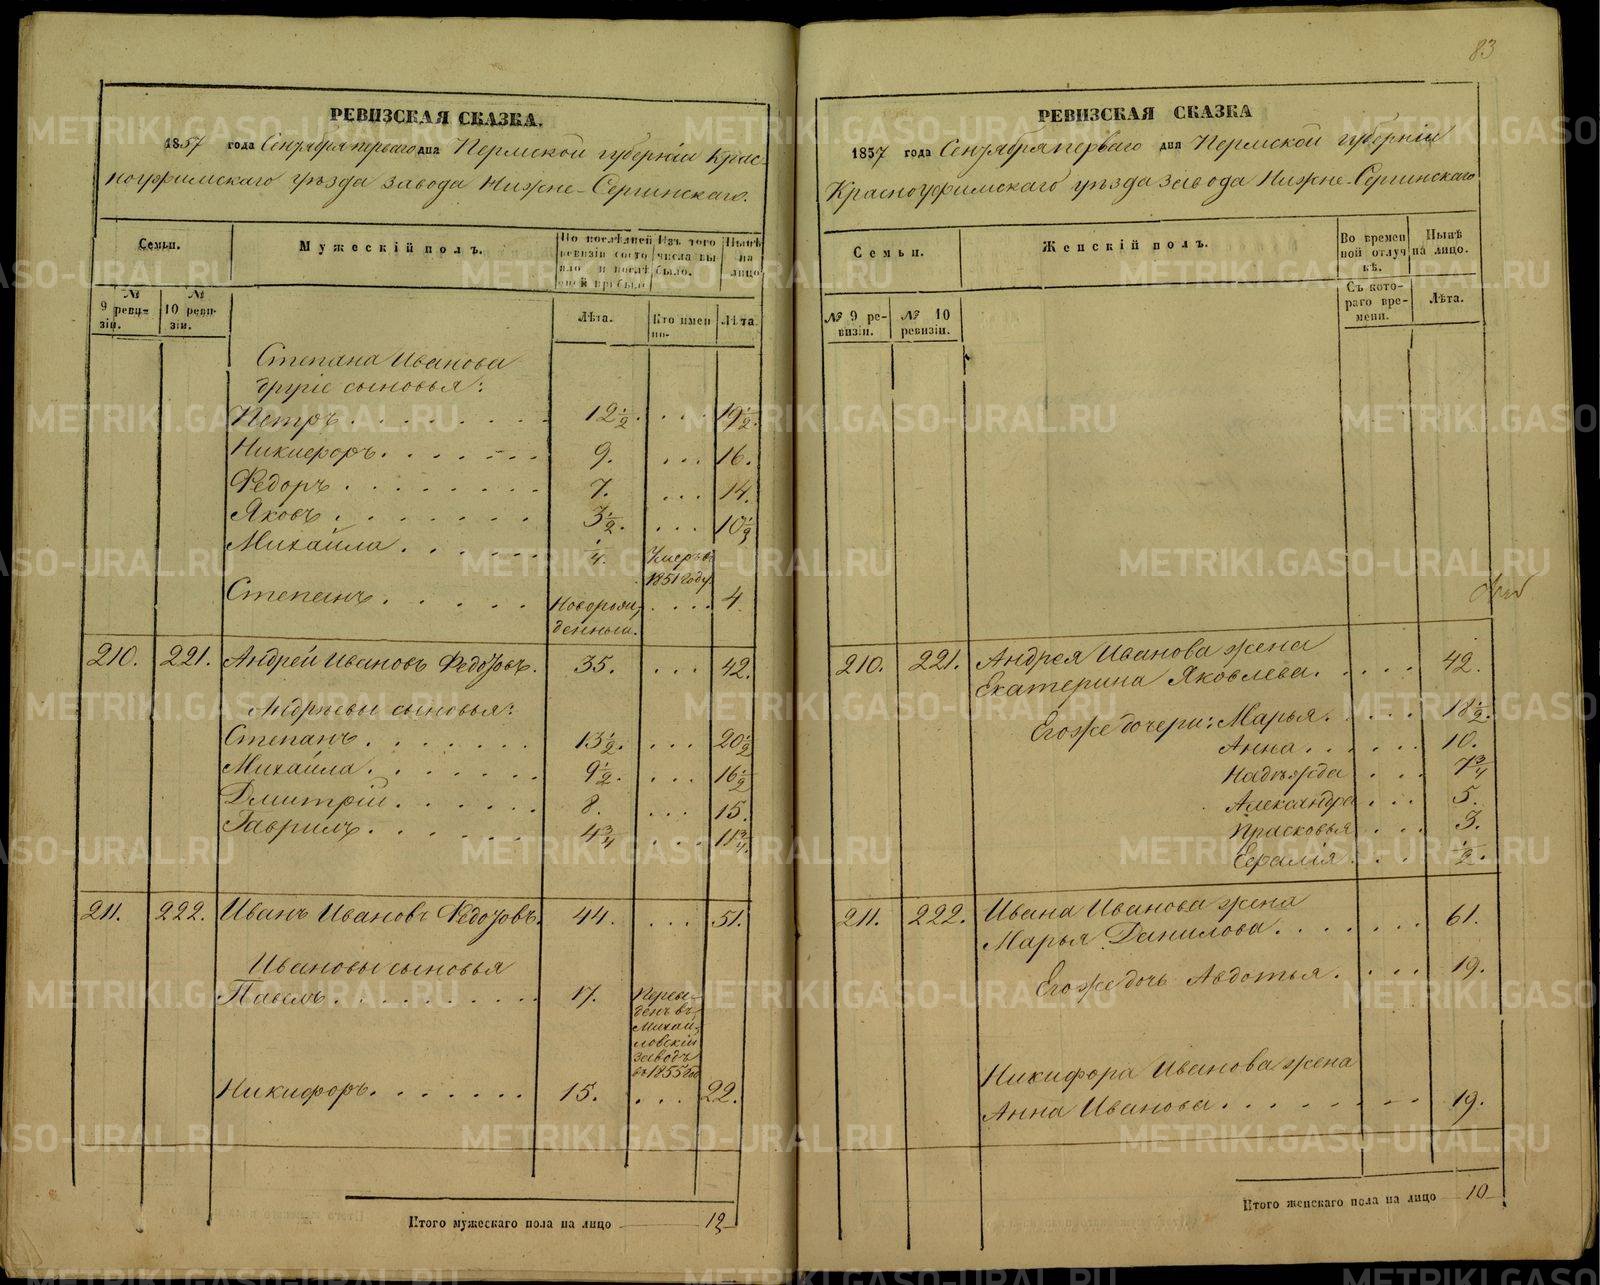 РЕВИЗСКАЯ СКАЗКА.
1857 года Сентября перваго дня Пермской губерніи Крас-
ноуфимскаго уѣзда завода Нижне-Сергинскаго.
Семьи.
Мужескій полъ.
По послѣдней ревизіи состояло и послѣ оной прибыло
Изъ того числа выбыло.
Нынѣ на лицо
№ 9 ревизіи.
№ 10 ревизіи.
Лѣта.
Кто именно.
Лѣта.
Степана Иванова
другіе сыновья:
Петръ. 12 1/2. 19 1/2.
Никифоръ. 9. 16.
Федоръ. 7. 14.
Яковъ. 3 1/2. 10 1/2
Михайла. 1/4. Умеръ въ 1851 году
Степанъ. Новорож-
денный. 4.
210. 221. Андрей Ивановъ Федотовъ. 35. 42.
Андреевы сыновья:
Степанъ. 13 1/2. 20 1/2
Михайла. 9 1/2. 16 1/2
Дмитрій. 8. 15.
Гаврилъ. 4 3/4 11 3/4.
211. 222. Иванъ Ивановъ Федотовъ. 44. 51.
Ивановы сыновья
Павелъ. 17. Переве-
денъ въ
Михай-
ловскій
заводъ
въ 1855 год
Никифоръ. 15. 22.
Итого мужескаго пола на лицо 12
83
РЕВИЗСКАЯ СКАЗКА
1857 года Сентября перваго дня Пермской губерніи
Красноуфимскаго уѣзда завода Нижне-Сергинскаго
Семьи.
Женскій полъ.
Во временной отлучкѣ.
Нынѣ на лицо.
№ 9 ревизіи.
№ 10 ревизіи.
Съ котораго времени.
Лѣта.
210. 221. Андрея Иванова жена
Екатерина Яковлева. 42.
Его же дочери: Марья. 18 1/2.
Анна. 10.
Надежда 7 3/4
Александра 5.
Прасковья 3.
1/2.
211. 222. Ивана Иванова жена
Марья Данилова. 61.
Его же дочь Авдотья. 19.
Никифора Иванова жена
Анна Иванова. 19.
Итого женскаго пола на лицо 10
METRIKI.GASO-URAL.RU